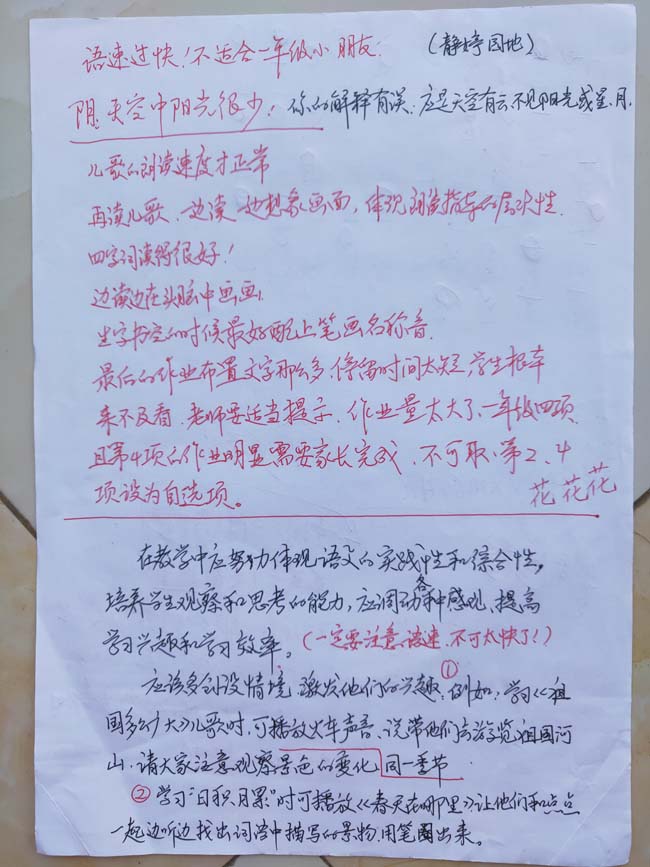 语速过快！不适合一年级小朋友.
（静婷园地）
阴：天空中阳光很少！你的解释有误：应是天空有云不见阳光或星、月.
儿歌的朗读速度才正常
再读儿歌、边读边想象画面，体现朗读指导的层次性.
四字词读得很好！
边读边在头脑中画画.
生字书空的时候最好配上笔画名称音.
最后的作业布置文字那么多，停留时间太短，学生根本
来不及看.老师要适当提示.作业量太大了、一年级四项
且第4项的作业明显需要家长完成、不可取、第2、4
项设为自选项。
花花花
在教学中应努力体现语文的实践性和综合性，
培养学生观察和思考的能力，应调动各种感观，提高
学习兴趣和学习效率。（一定要注意语速.不可太快了！）
应该多创设情境，激发他们的兴趣，①例如：学习《祖
国多么广大》儿歌时，可播放火车声音，说带他们去游览祖国河
山.请大家注意观察景色的变化 同一季节
②学习“日积月累”时可播放《春天在哪里》让他们和点点
一起边听边找出词语中描写的景物，用笔圈出来。